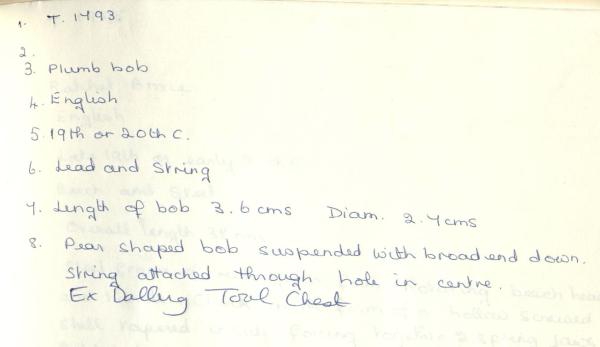 1. T. 1493.
2.
3. Plumb bob
4. English
5. 19th or 20th C.
6. Lead and String
7. Length of bob 3.6 cms Diam. 2.4 cms
8. Pear shaped bob suspended with broad end down.
String attached through hole in centre.
Ex Dalling Tool Chest